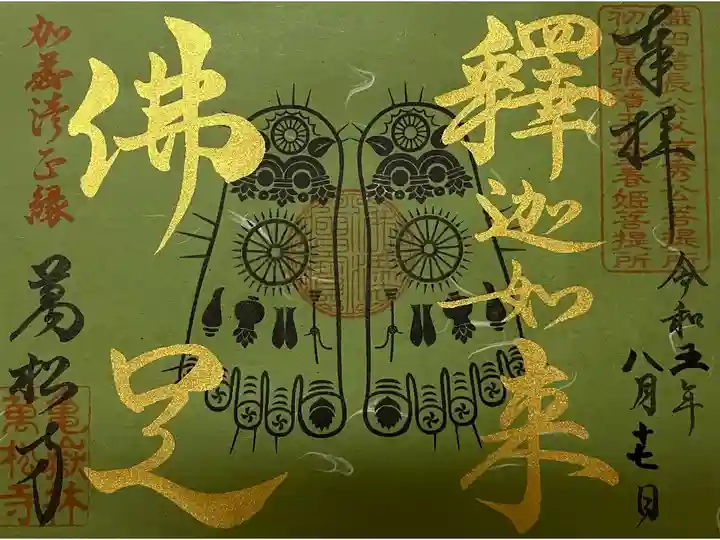 奉拝
織田信長公父信秀公菩提所
初代尾張藩主正室春姫菩提所
令和五年
八月十七日
釋迦如来
佛足
加藤清正縁
萬松寺
亀嶽林
萬松寺